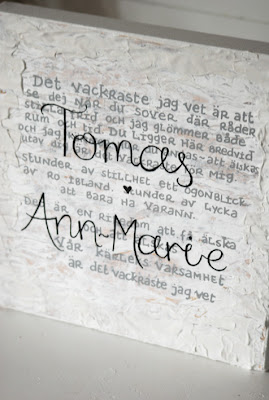 Det vackraste jag vet är att
se dej när du sover där råder
frid och jag glömmer både
rum och tid. Du ligger här bredvid
Tomas
stunder av stillhet ett ögonblick
av ro ibland. under av lycka
att bara ha varann.
Ann-Marie
att få älska
vår kärleks varsamhet
är det vackraste jag vet